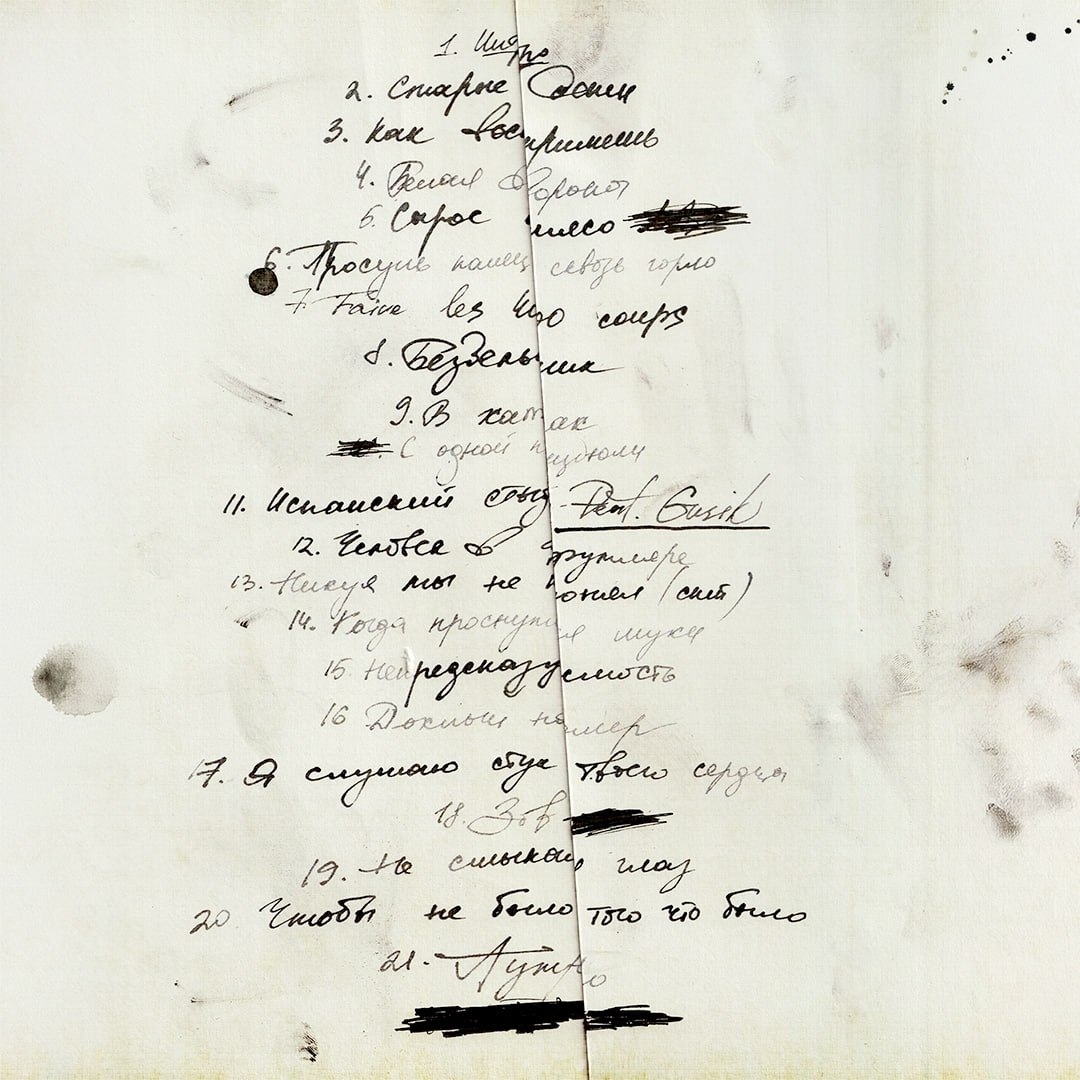 1. Интро
2. Старые
3. Как воспримешь
4. Белая Ворона
5. Сырое мясо
6. Просунь палец сквозь горло
7. Faire les 400 coups
8. Бездельник
9. В хатак
С одной
11. Испанский стыд Feat. Gusik
12. Человек в футляре
13. Нихуя мы не поняли (скит)
14. Когда проснутся мухи
15. Непредсказуемость
16 Дохлый номер
17. Я слушаю стук твоего сердца
18. Зов
19. Не смыкая глаз
20 Чтобы не было того что было
21. Аутро